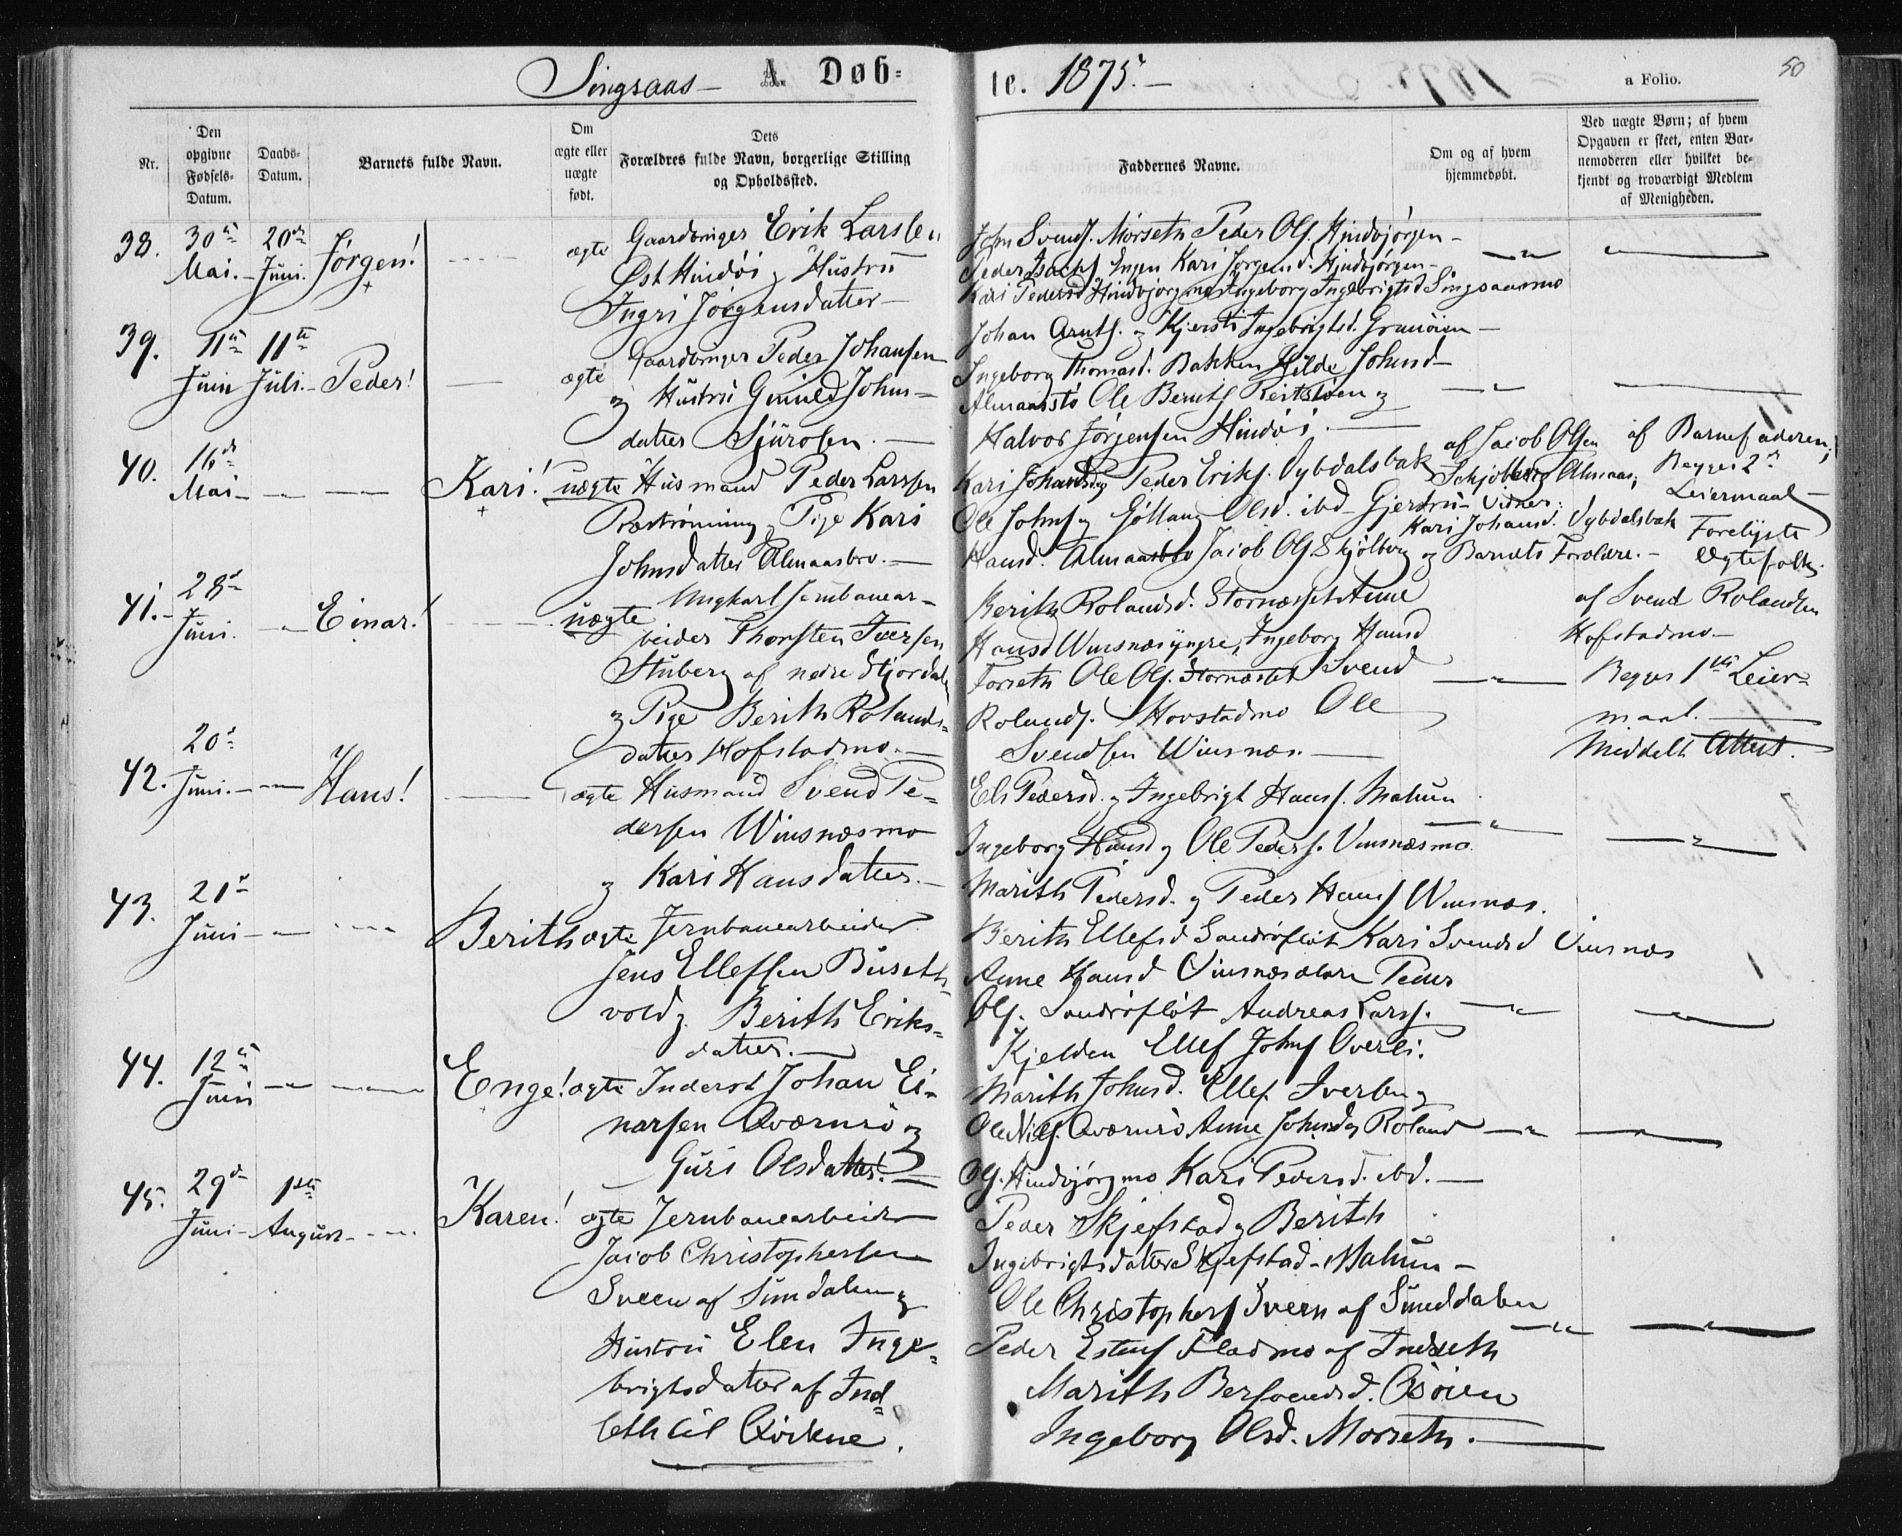 Singsaas — A. Døb=
te. 1875. —
a Folio.
50
Nr.
Den opgivne Fødsels-Datum.
Daabs-Datum.
Barnets fulde Navn.
Om ægte eller uægte født.
Dets Forældres fulde Navn, borgerlige Stilling og Opholdssted.
Faddernes Navne.
Om og af hvem hjemmedøbt.
Ved uægte Børn; af hvem Opgaven er skeet, enten Barnemoderen eller hvilket bekjendt og troværdigt Medlem af Menigheden.
38. 30te Mai. — 20de Juni. Jørgen! ægte
Gaardbruger Erik Larssen
Øst Hindøi og Hustru
Ingri Jörgensdatter —
John Svends. Morseth Peder Ols. Hindbjørgen —
Peder Isachs. Engen Kari Jørgensd. Hindbjørgen —
Kari Pedersd Hindbjorgmo Ingeborg Ingebrigtsd Singsaasmo
39. 11te Juni 11te Juli — Peder! ægte
Gaardbruger Peder Johansen
og Hustru Gunild Johns —
datter Sjürosen. —
Johan Arnts. og Kjersti Ingebrigtsd. Granøien —
Ingeborg Thomasd. Bakken Hilde Johnsd —
Almaasstø Ole Bernts og
Halvor Jørgensen Hindøi. —
40. 16de Mai — Kari! uægte
Husmand Peder Larssen
Præstrønning og Pige Kari
Johnsdatter Almaasbro. —
Kari Johansd og Peder Eriks. Vybdalsbak
Ole Johns og Gølaug Olsd. ibd Gjertru
Hansd. Almaasbro Jacob Ols Skjølberg og Barnets Forældre. —
af Jacob Olsen
Skjølberg Almaas,
Vidner:
Kari Johansd. Vybdalsbak
af Barnefaderen;
Begges 2det
Leiermaal —
Forelyste
Ægtefolk.
41. — 28de Juni. Einar! uægte
Ungkarl Jernbanear —
beider Thorsten Iversen
Stuberg af nedre Stjørdalen
og Pige Berith Rolands
datter Hofstadmo. —
Berith Rolandsd. Stornæsset Anne
Hansd Winsnæs yngre, Ingeborg Hansd
Forseth Ole Ols. Stornæsset Svend
Rolands. Hovstadmo Ole
Svendsen Winsnæs. —
af Svend Rolandsen
Hofstadmo —
Begges 1ste Leier=
maal. —
Meddelt Attest.
42. 20de Juni. — Hans! ægte
Husmand Svend Pe=
dersen Winsnæsmo
og Kari Hansdatter. —
Eli Pedersd. og Ingebrigt Hans. Mahum
Ingeborg Hansd og Ole Peders. Vinsnæsmo
Marith Pedersd. og Peder Hans Winsnæs.
43. 21de Juni — Berith ægte
Jernbanearbeider
Jens Ellefsen Buseth
vold og Berith Eriks=
datter. —
Berith Ellefsd Sandrøfløt Kari Svendsd Vinsnæs
Anne Hansd Vinsnæs ældre Peder
Ols. Sandrøfløt Andreas Larss.
Kjelden Ellef Johns Overli.
44. 12te Juni — Enge! ægte
Inderst Johan Ei=
narsen Qværnrø og
Guri Olsdatter! —
Marith Johnsd. Ellef. Iversen og
Ole Niels. Qværnrø Anne Johnsd og Roland
Ols. Hindbjørgmo Kari Pedersd. ibd. —
45. 29de Juni — 1ste August — Karen! ægte
Jernbanearbeider
Jacob Christophersen
Sveen af Sundalen og
Hustru Elen Inge=
brigtsdatter af Ind=
seth til Qvikne.
Peder Skjefstad og Berith
Ingebrigtsdatter Skjefstad — Mahum —
Ole Christophers Sveen af Sunddalen
Peder Estens Fladmo af Indseth
Marith Bersvendsd.
Ingeborg Olsd. Morseth. —